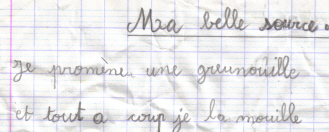 Ma belle source.
je promène une greunouille
et tout a coup je la mouille